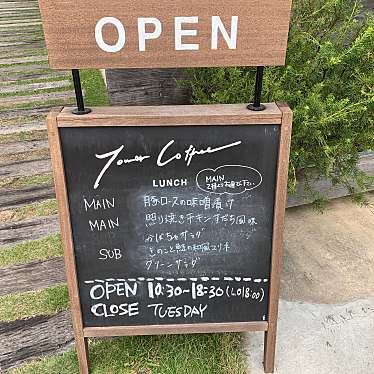 OPEN
Tower Coffee
LUNCH
MAIN
2種よりお選び下さい
MAIN 豚ロースの味噌漬け
MAIN 照り焼きチキンすだち風味
かぼちゃサラダ
SUB きのこと鮭の和風マリネ
グリーンサラダ
OPEN 10:30-18:30 (LO18:00)
CLOSE TUESDAY